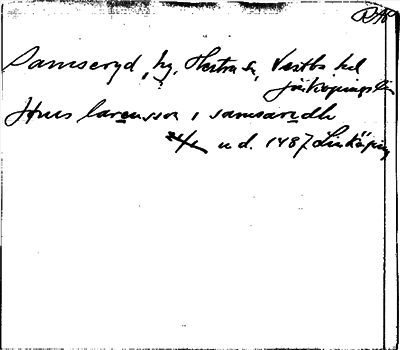 RAp
Samseryd, by, Hestra sn, Västbo hd
Jönköpings län
Jwns larensson i samsarydh
24/2 u.d. 1487 Linköping